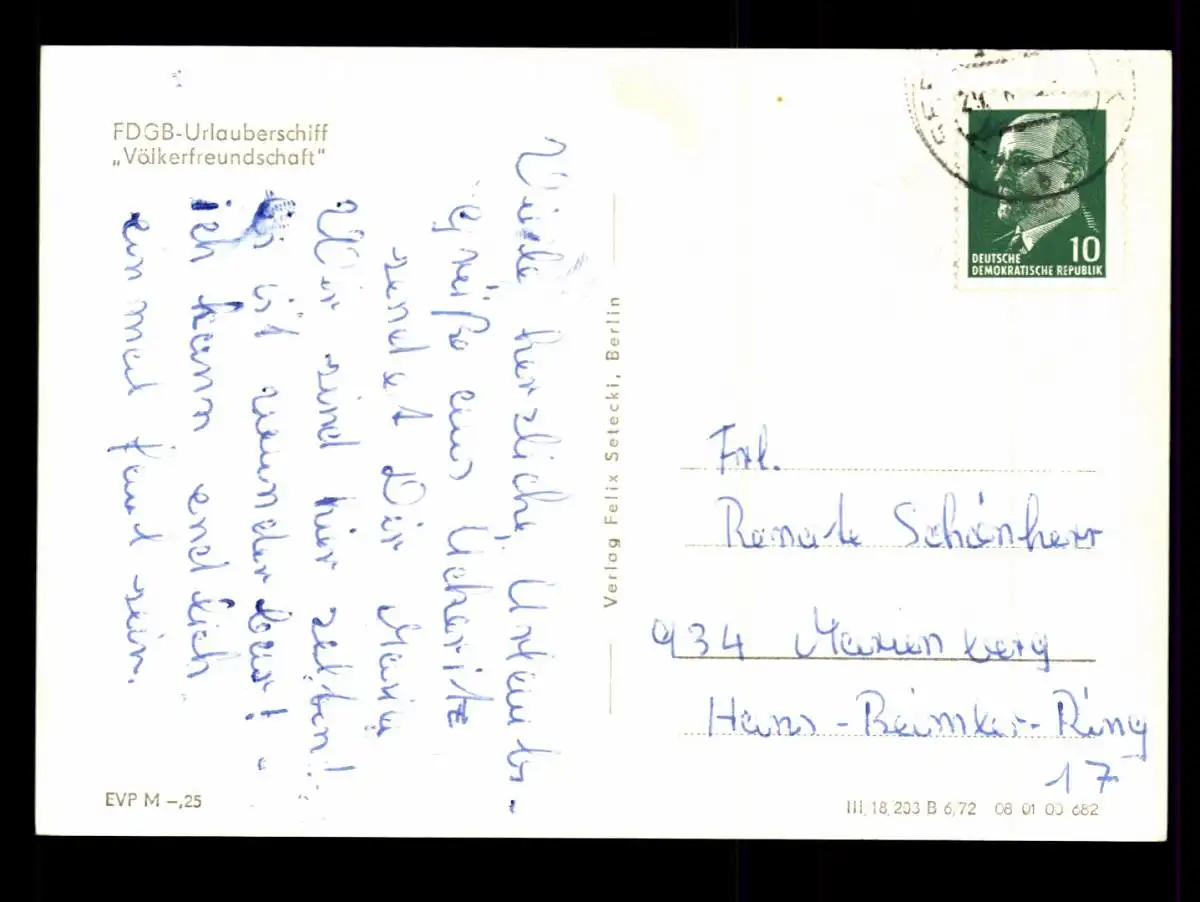 FDGB-Urlauberschiff
„Völkerfreundschaft"
Viele herzliche Urlaubs-
grüße aus Ückeritz
sendet Dir Maria
Wir sind hier selten!
Es ist wunderbar!
ich kann endlich
einmal faul sein.
Verlag Felix Setecki, Berlin
DEUTSCHE
DEMOKRATISCHE REPUBLIK
10
Frl.
Renate Schönherr
934 Marienberg
Hans-Beimler-Ring
17
EVP M –,25
III 18, 203 B 6,72 08 01 00 682